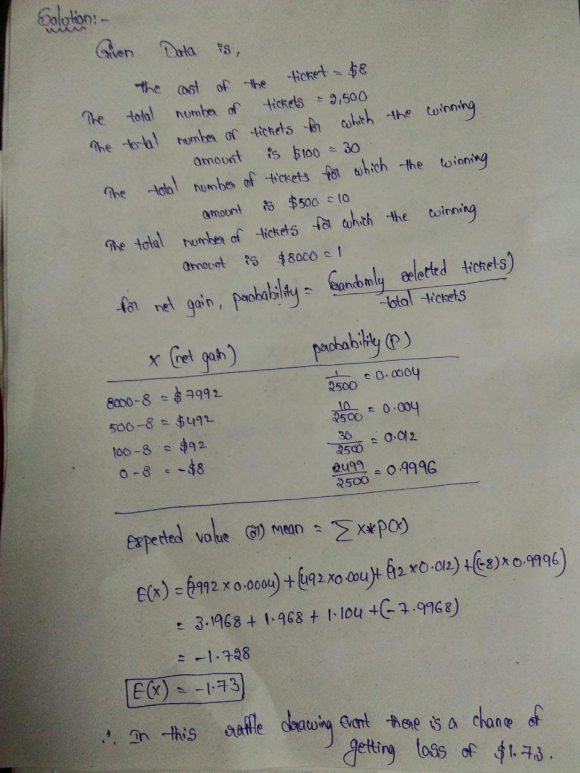 Solution:-
Given Data is,
The cost of the ticket = $8
The total number of tickets = 2,500
The total number of tickets for which the winning
amount is $100 = 30
The total number of tickets for which the winning
amount is $500 = 10
The total number of tickets for which the winning
amount is $8000 = 1
for net gain, probability = (randomly selected tickets)
total tickets
x (net gain) probability (P)
8000-8 = $7992 1/2500 = 0.0004
500-8 = $492 10/2500 = 0.004
100-8 = $92 30/2500 = 0.012
0-8 = -$8 2499/2500 = 0.9996
Expected value (or) mean = ∑x*P(x)
E(x) = (7992 x 0.0004) + (492 x 0.004) + (92 x 0.012) + ((-8) x 0.9996)
= 3.1968 + 1.968 + 1.104 + (-7.9968)
= -1.728
E(x) = -1.73
∴ In this raffle drawing event there is a chance of
getting loss of $1.73.